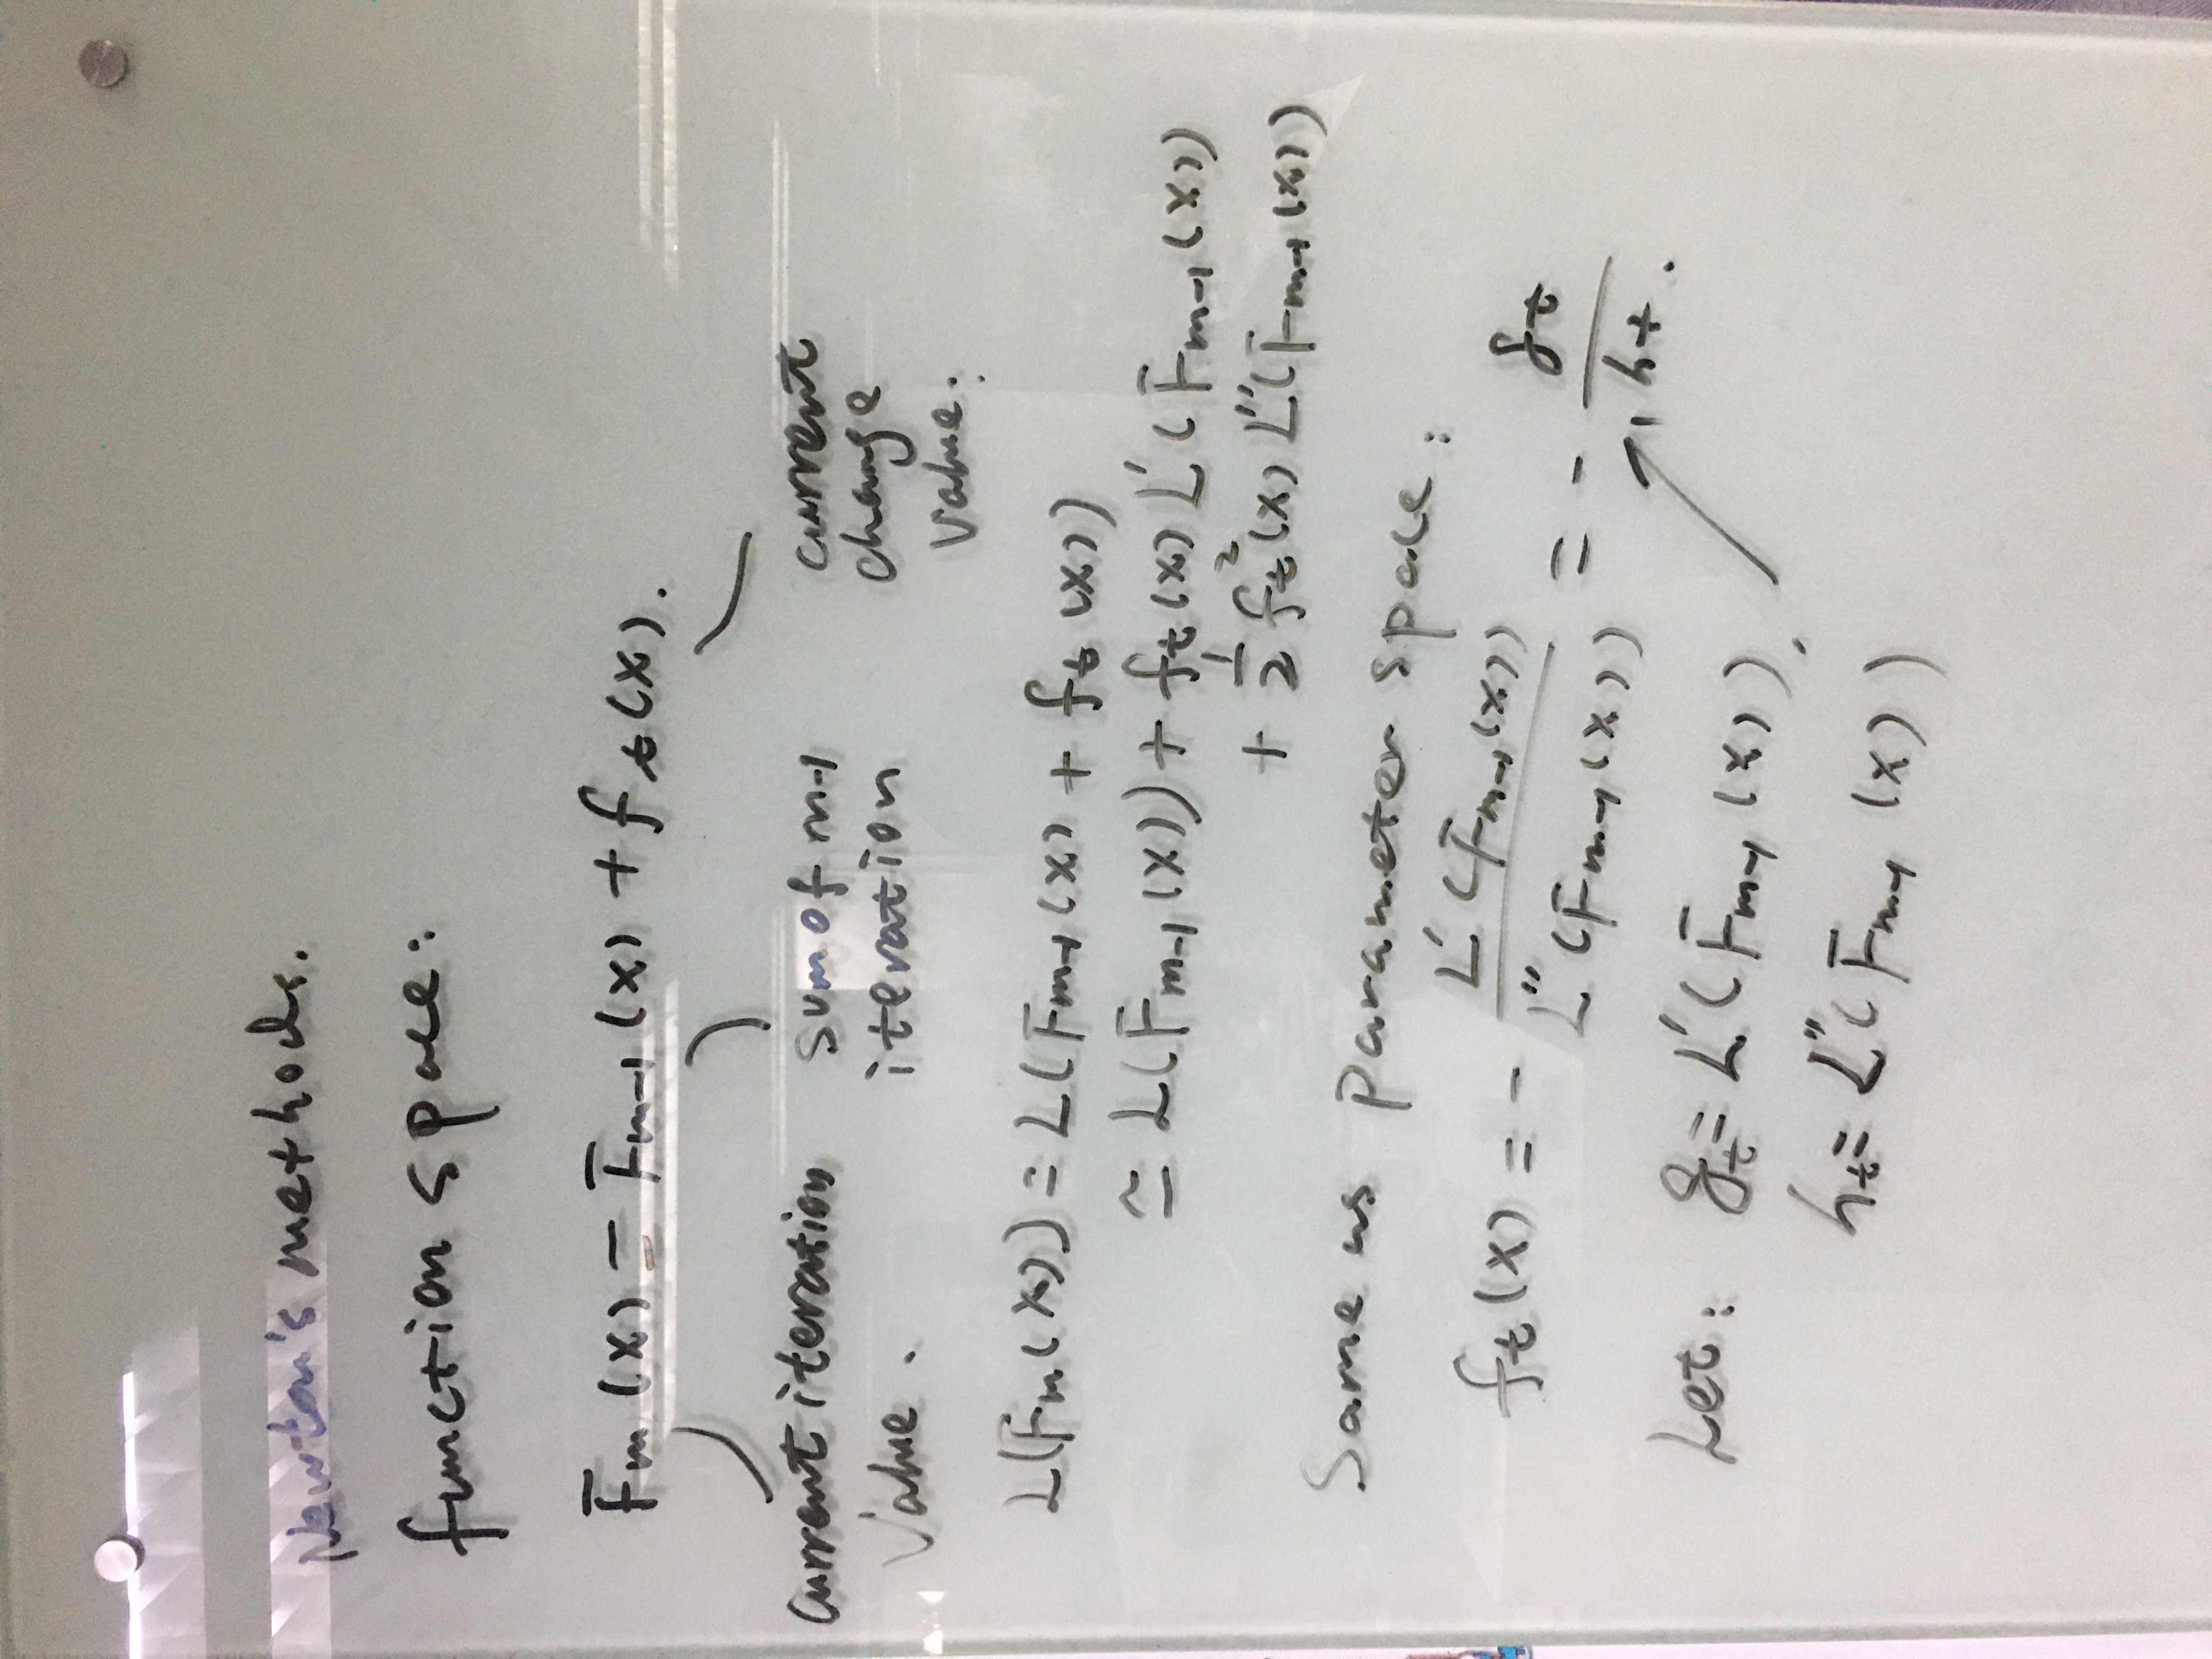 Newton's methods.
function space:
Fm (x) = Fm-1 (x) + ft(x).
current iteration value.
sum of m-1 iteration
current change value.
L(Fm(x)) = L(Fm-1(x) + ft(x))
≃ L(Fm-1(x)) + ft(x) L'(Fm-1(x))
+ 1/2 ft²(x) L''(Fm-1(x))
Same as parameter space:
ft(x) = - L'(Fm-1(x)) / L''(Fm-1(x)) = - gt / ht.
Let: gt = L'(Fm-1(x)),
ht = L''(Fm-1(x))